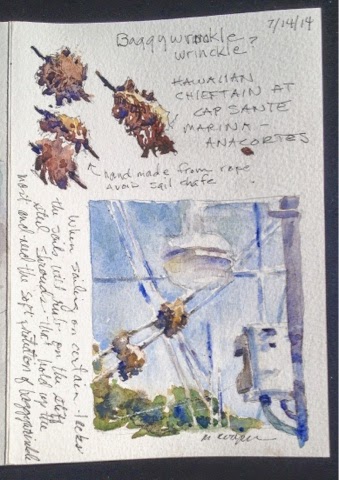 7/14/14
Baggywrinkle
wrinckle?
HAWAIIAN
CHIEFTAIN AT
CAP SANTE
MARINA -
ANACORTES
hand made from rope
avoid sail chafe
When sailing on certain tacks
the sails will on the stiff
steel shrouds that hold up the
mast and need the soft of baggywrinkle